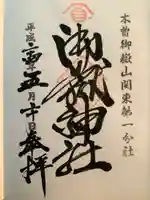 木曽御嶽山関東第一分社
御嶽神社
平成二十四年五月二十日
奉拝